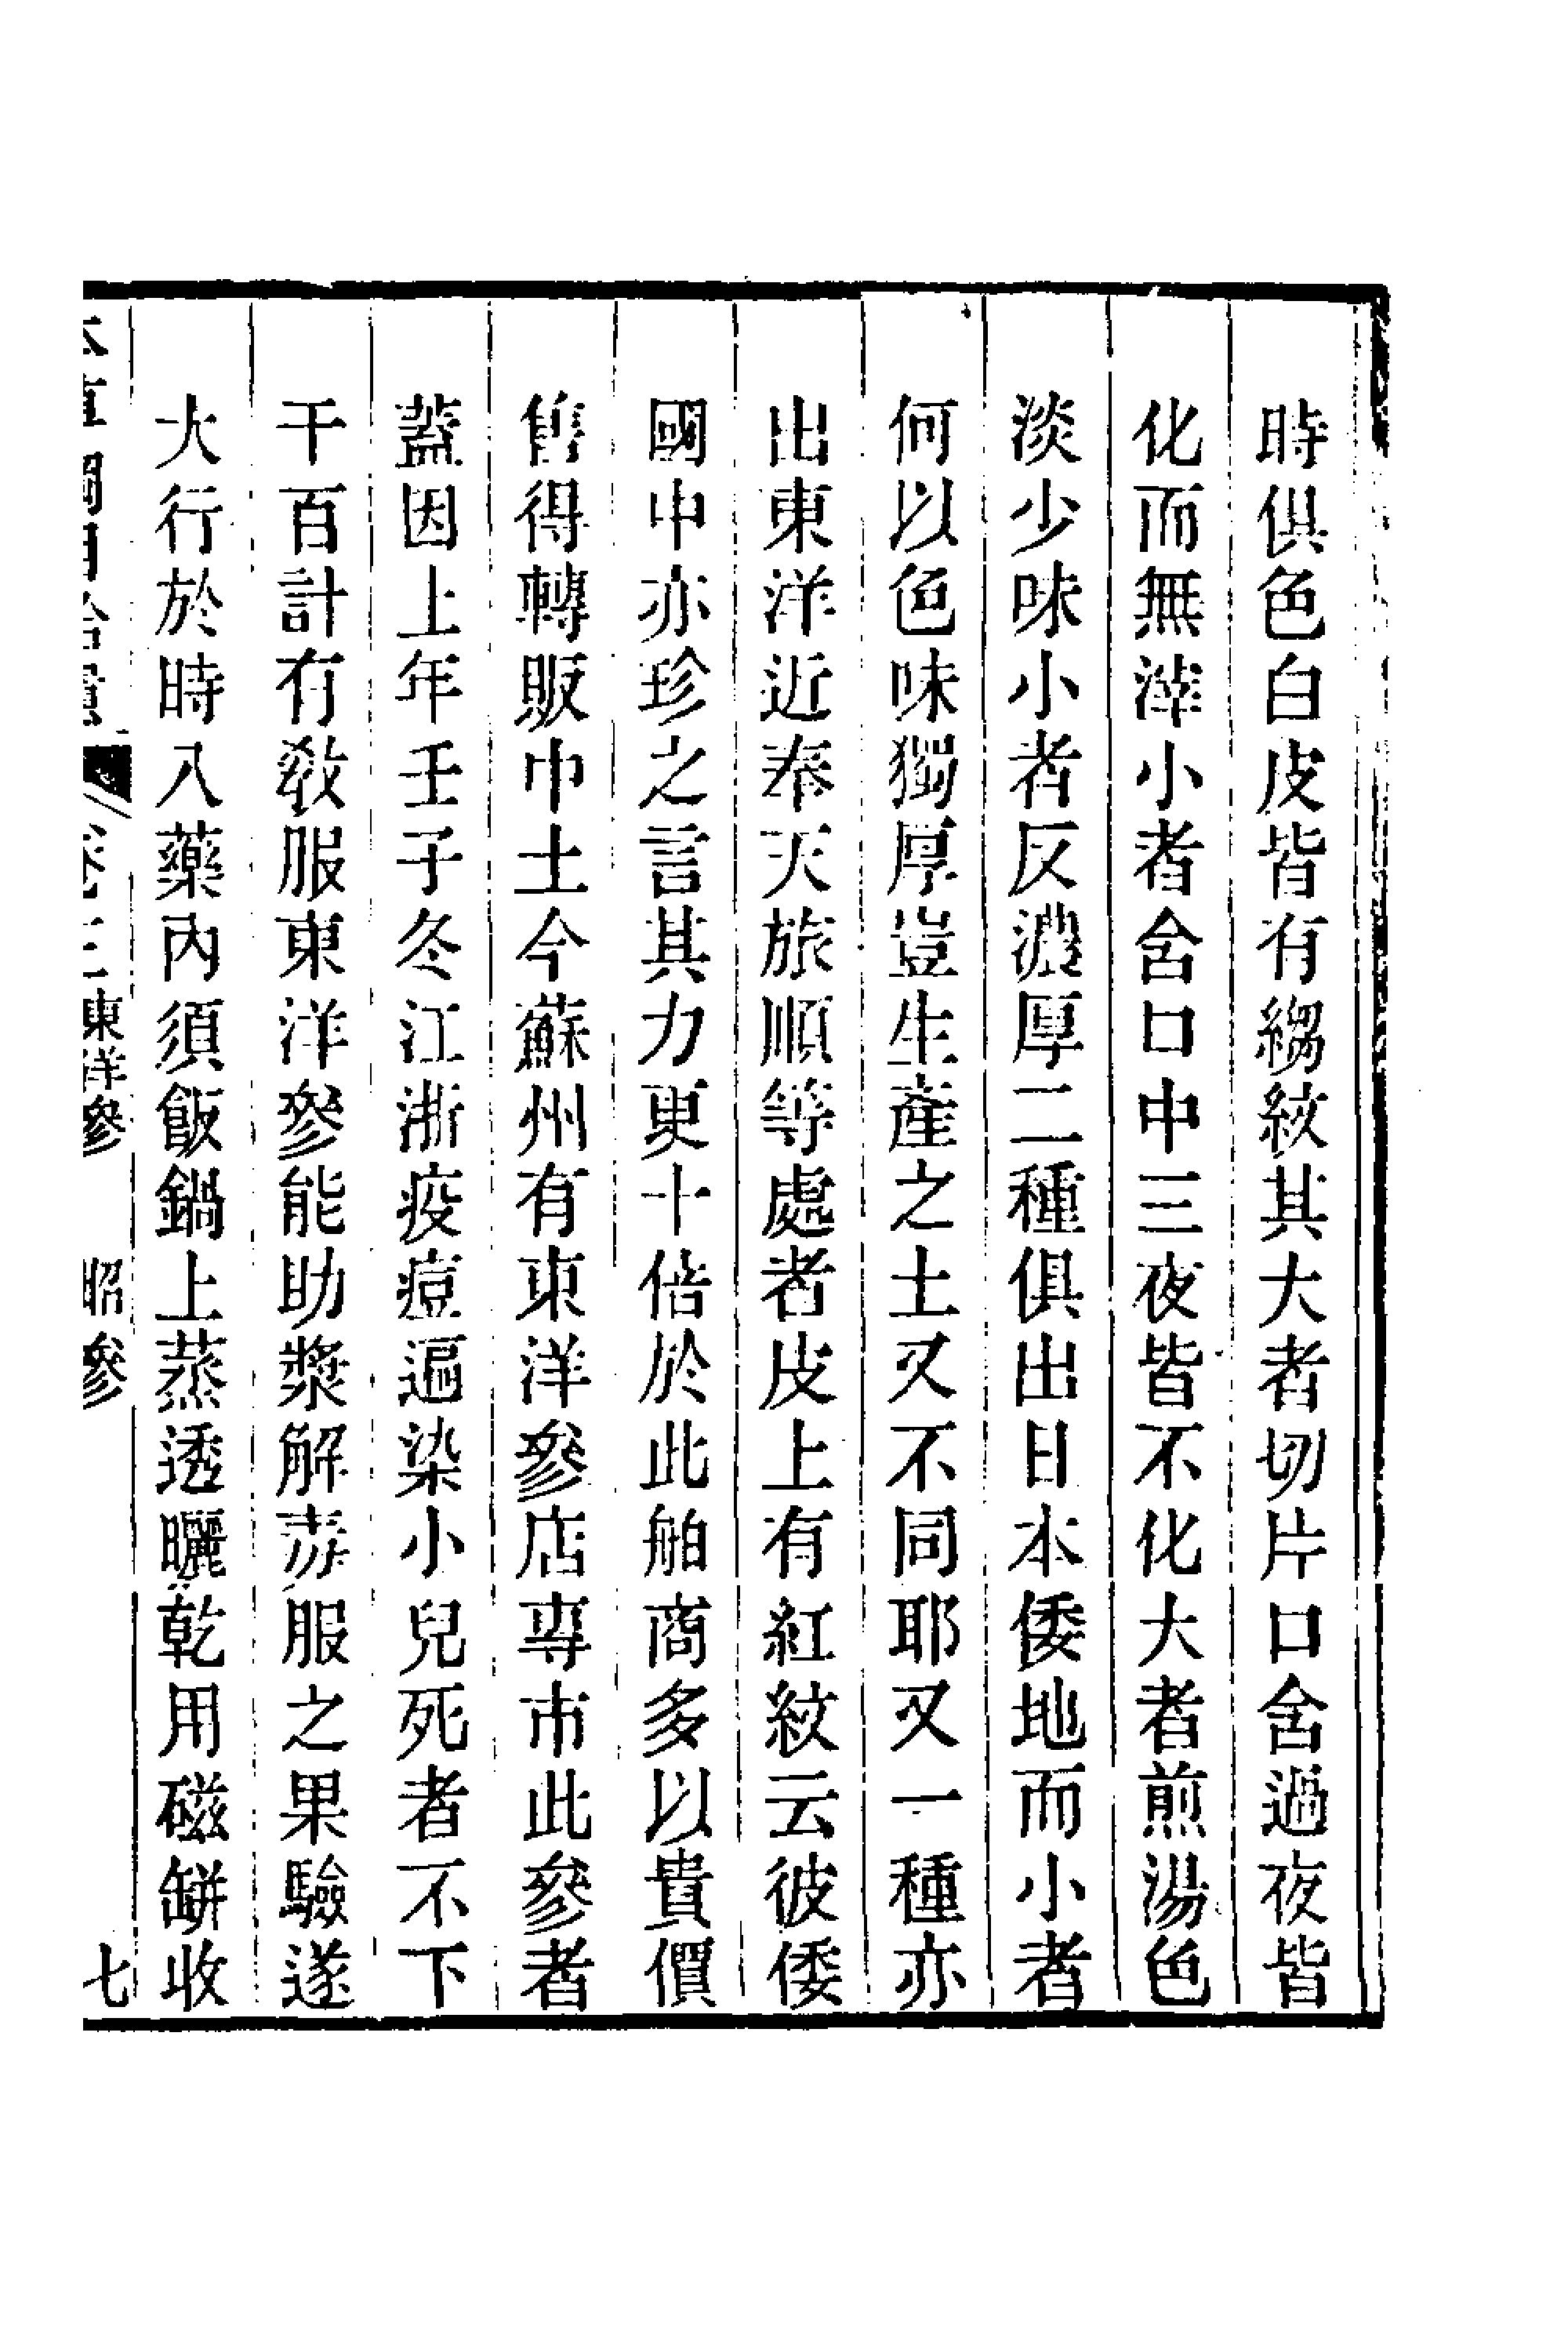 時俱色白皮皆有縐紋其大者切片口含過夜皆
化而無滓小者含口中三夜皆不化大者煎湯色
淡少味小者反濃厚二種俱出日本倭地而小者
何以色味獨厚豈生產之土又不同耶又一種亦
出東洋近奉天旅順等處者皮上有紅紋云彼倭
國中亦珍之言其力更十倍於此舶商多以貴價
售得轉販中土今蘇州有東洋參店專市此參者
蓋因上年壬子冬江浙疫痘遍染小兒死者不下
千百計有教服東洋參能助漿解毒服之果驗遂
大行於時入藥內須飯鍋上蒸透曬乾用磁缾收
本草綱目拾遺 卷三 東洋參 昭參 七